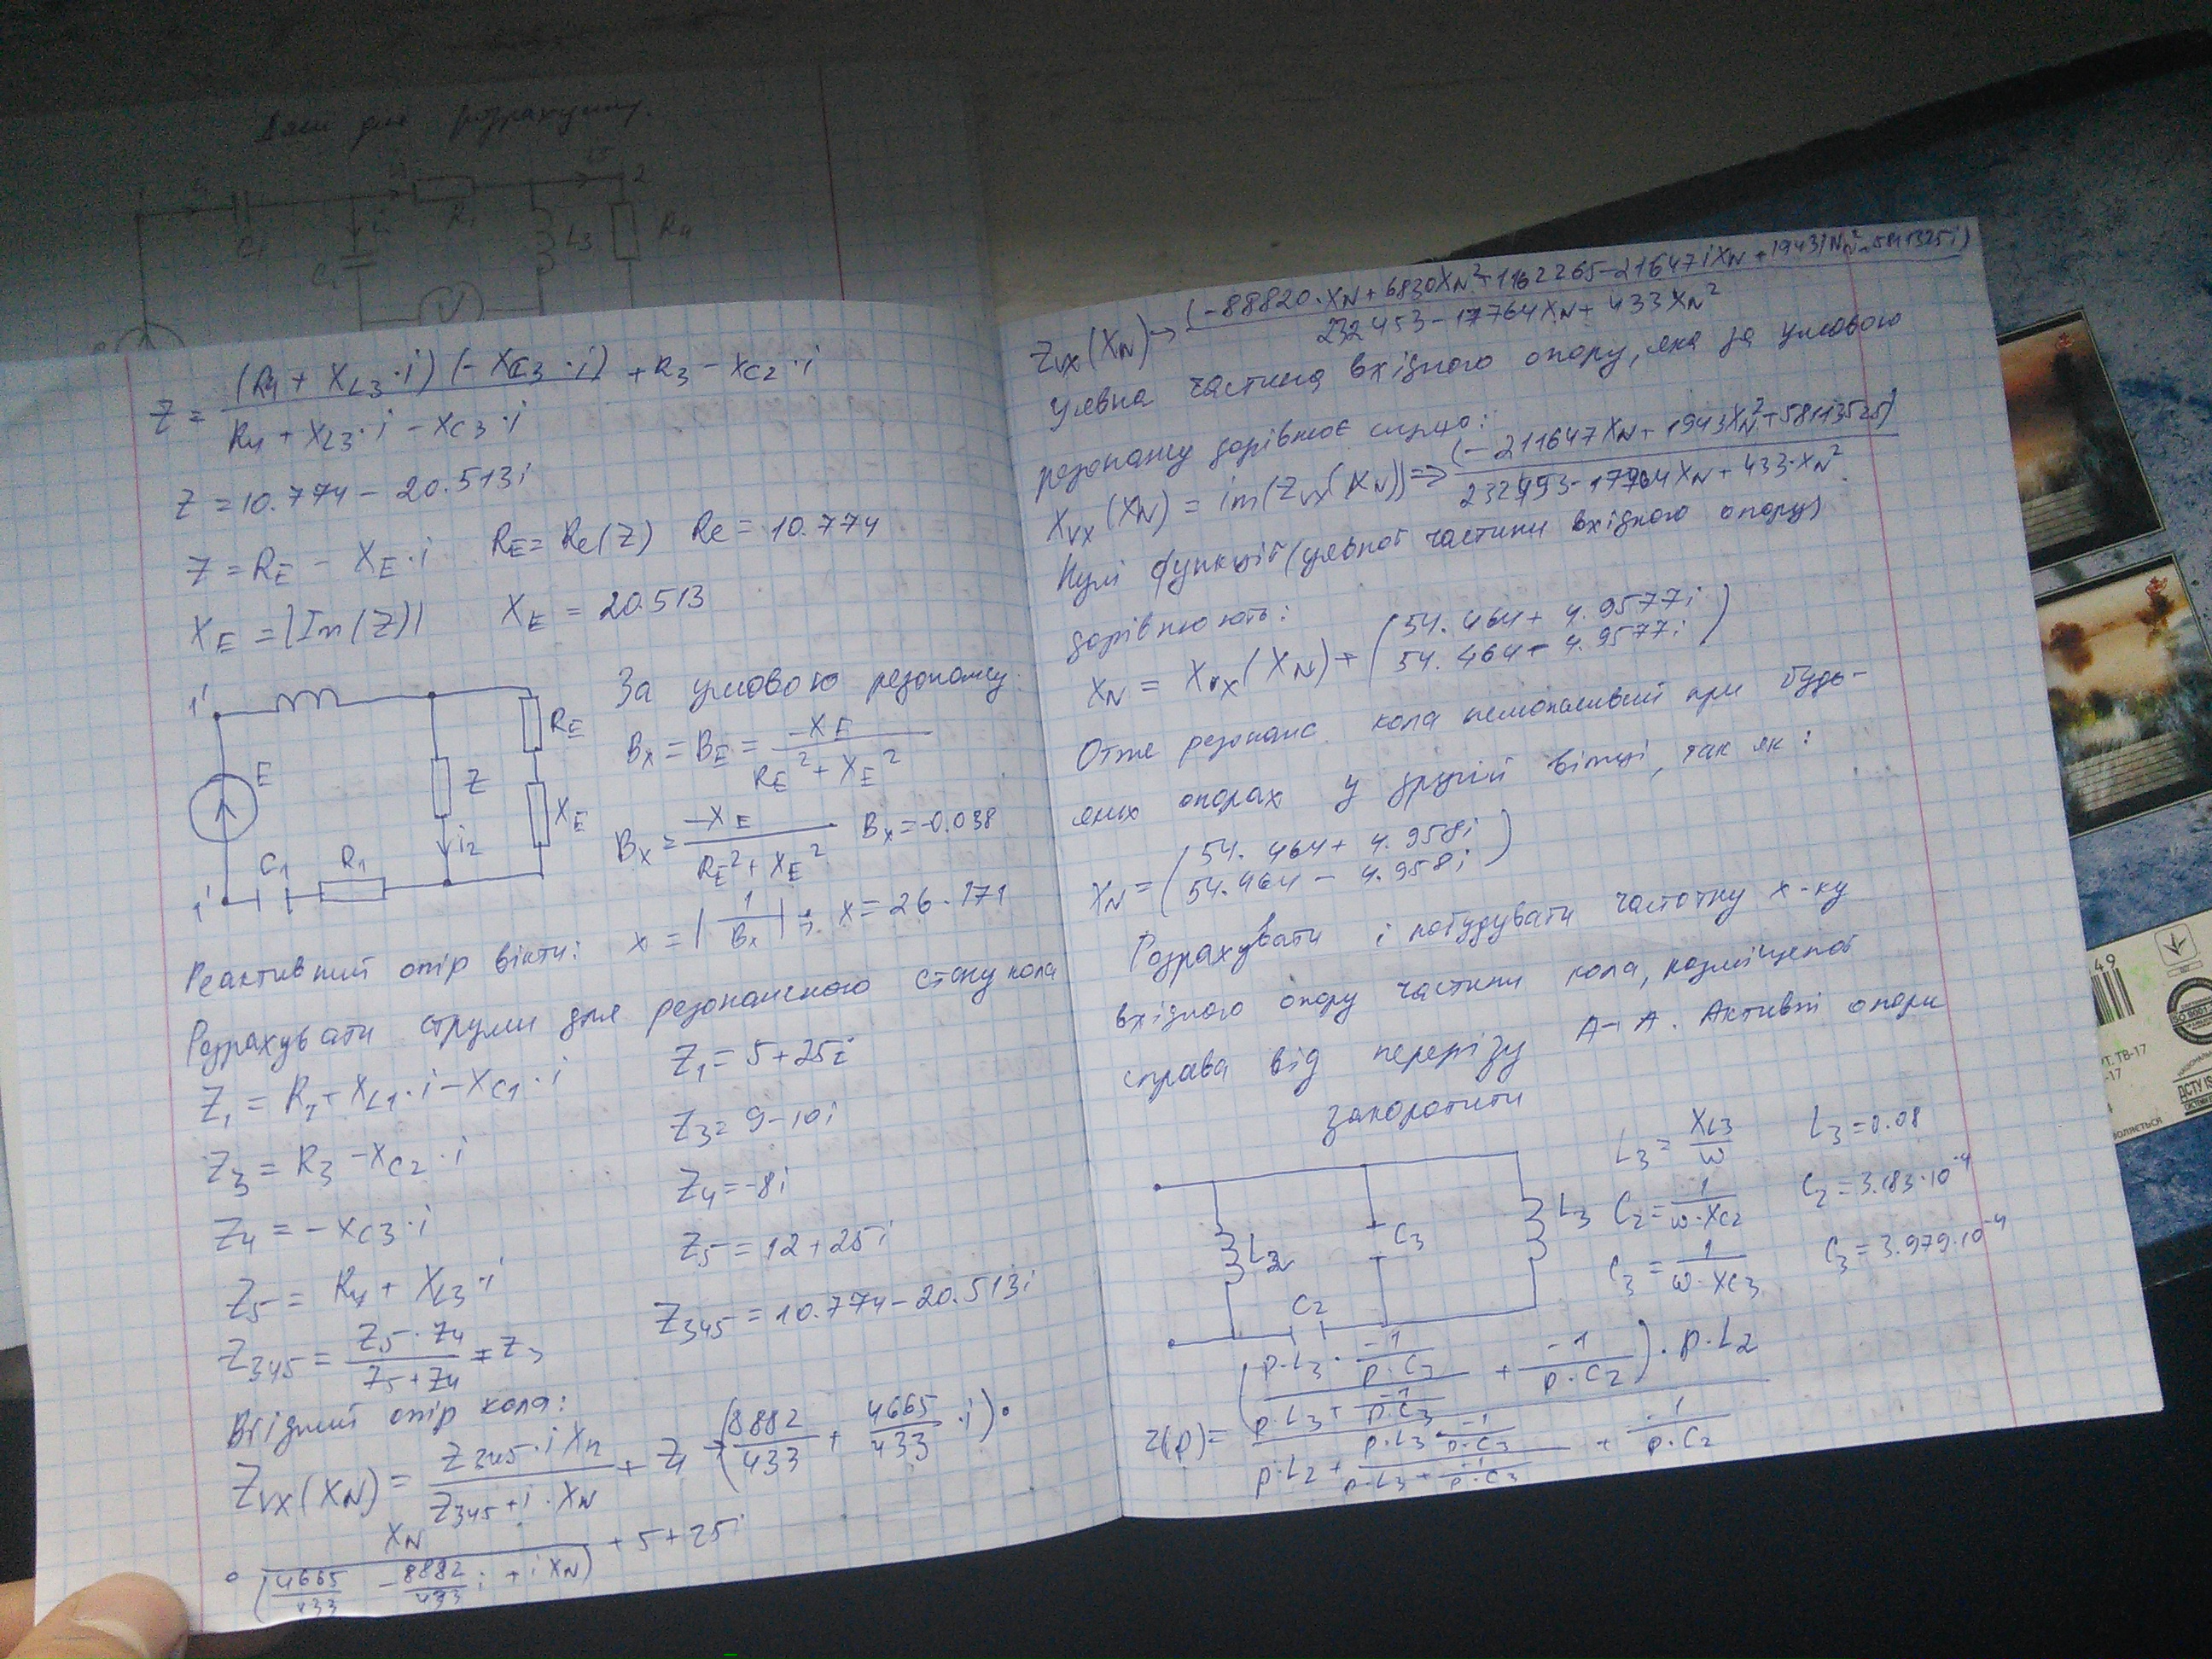 Дані для розрахунку.
C1
R1
L3
R4
2
Z = (R4 + XL3·i)(-XC3·i) / (R4 + XL3·i - XC3·i) + R3 - XC2·i
Z = 10.774 - 20.513i
Z = RE - XE·i RE = Re(Z) Re = 10.774
XE = |Im(Z)| XE = 20.513
1'
RE
E
Z
XE
i2
C1 R1
1'
За умовою резонансу
Bx = BE = -XE / (RE² + XE²)
Bx = -XE / (RE² + XE²) Bx = -0.038
Реактивний опір вітки: x = |1/Bx| ; x = 26.171
Розрахувати струми для резонансного стану кола
Z1 = R1 + XL1·i - XC1·i Z1 = 5+25i
Z3 = R3 - XC2·i Z3 = 9-10i
Z4 = -XC3·i Z4 = -8i
Z5 = R4 + XL3·i Z5 = 12+25i
Z345 = Z5·Z4 / (Z5+Z4) + Z3 Z345 = 10.774 - 20.513i
Вхідний опір кола:
ZVX(XN) = Z345·i XN / (Z345 + i·XN) + Z1 → (8882/433 + 4665/433·i)·
· XN / (4665/433 - 8882/433 i + iXN) + 5+25i
ZVX(XN) → (-88820·XN + 6830XN² + 1162265 - 211647iXN + 1943iXN² + 5811325i) / (232453 - 17764XN + 433XN²)
Уявна частина вхідного опору, яка за умовою
резонансу дорівнює нулю:
XVX(XN) = im(ZVX(XN)) => (-211647XN + 1943XN² + 5811325) / (232453 - 17764XN + 433·XN²)
Нулі функції (уявної частини вхідного опору)
дорівнюють:
XN = XVX(XN) → (54.464 + 4.9577i
54.464 - 4.9577i)
Отже резонанс кола неможливий при будь-
яких опорах у другій вітці, так як:
XN = (54.464 + 4.958i
54.464 - 4.958i)
Розрахувати і побудувати частотну х-ку
вхідного опору частини кола, розміщеної
справа від перерізу A-A. Активні опори
закоротити
L2
C3
L3
C2
L3 = XL3/ω L3 = 0.08
C2 = 1/(ω·XC2) C2 = 3.183·10⁻⁴
C3 = 1/(ω·XC3) C3 = 3.979·10⁻⁴
Z(p) = ((p·L3·1/(p·C3)) / (p·L3 + 1/(p·C3)) + 1/(p·C2))·p·L2 / (p·L2 + (p·L3·1/(p·C3)) / (p·L3 + 1/(p·C3)) + 1/(p·C2))
49
УТ. ТВ-17
-17
ISO 9001
ДСТУ IS